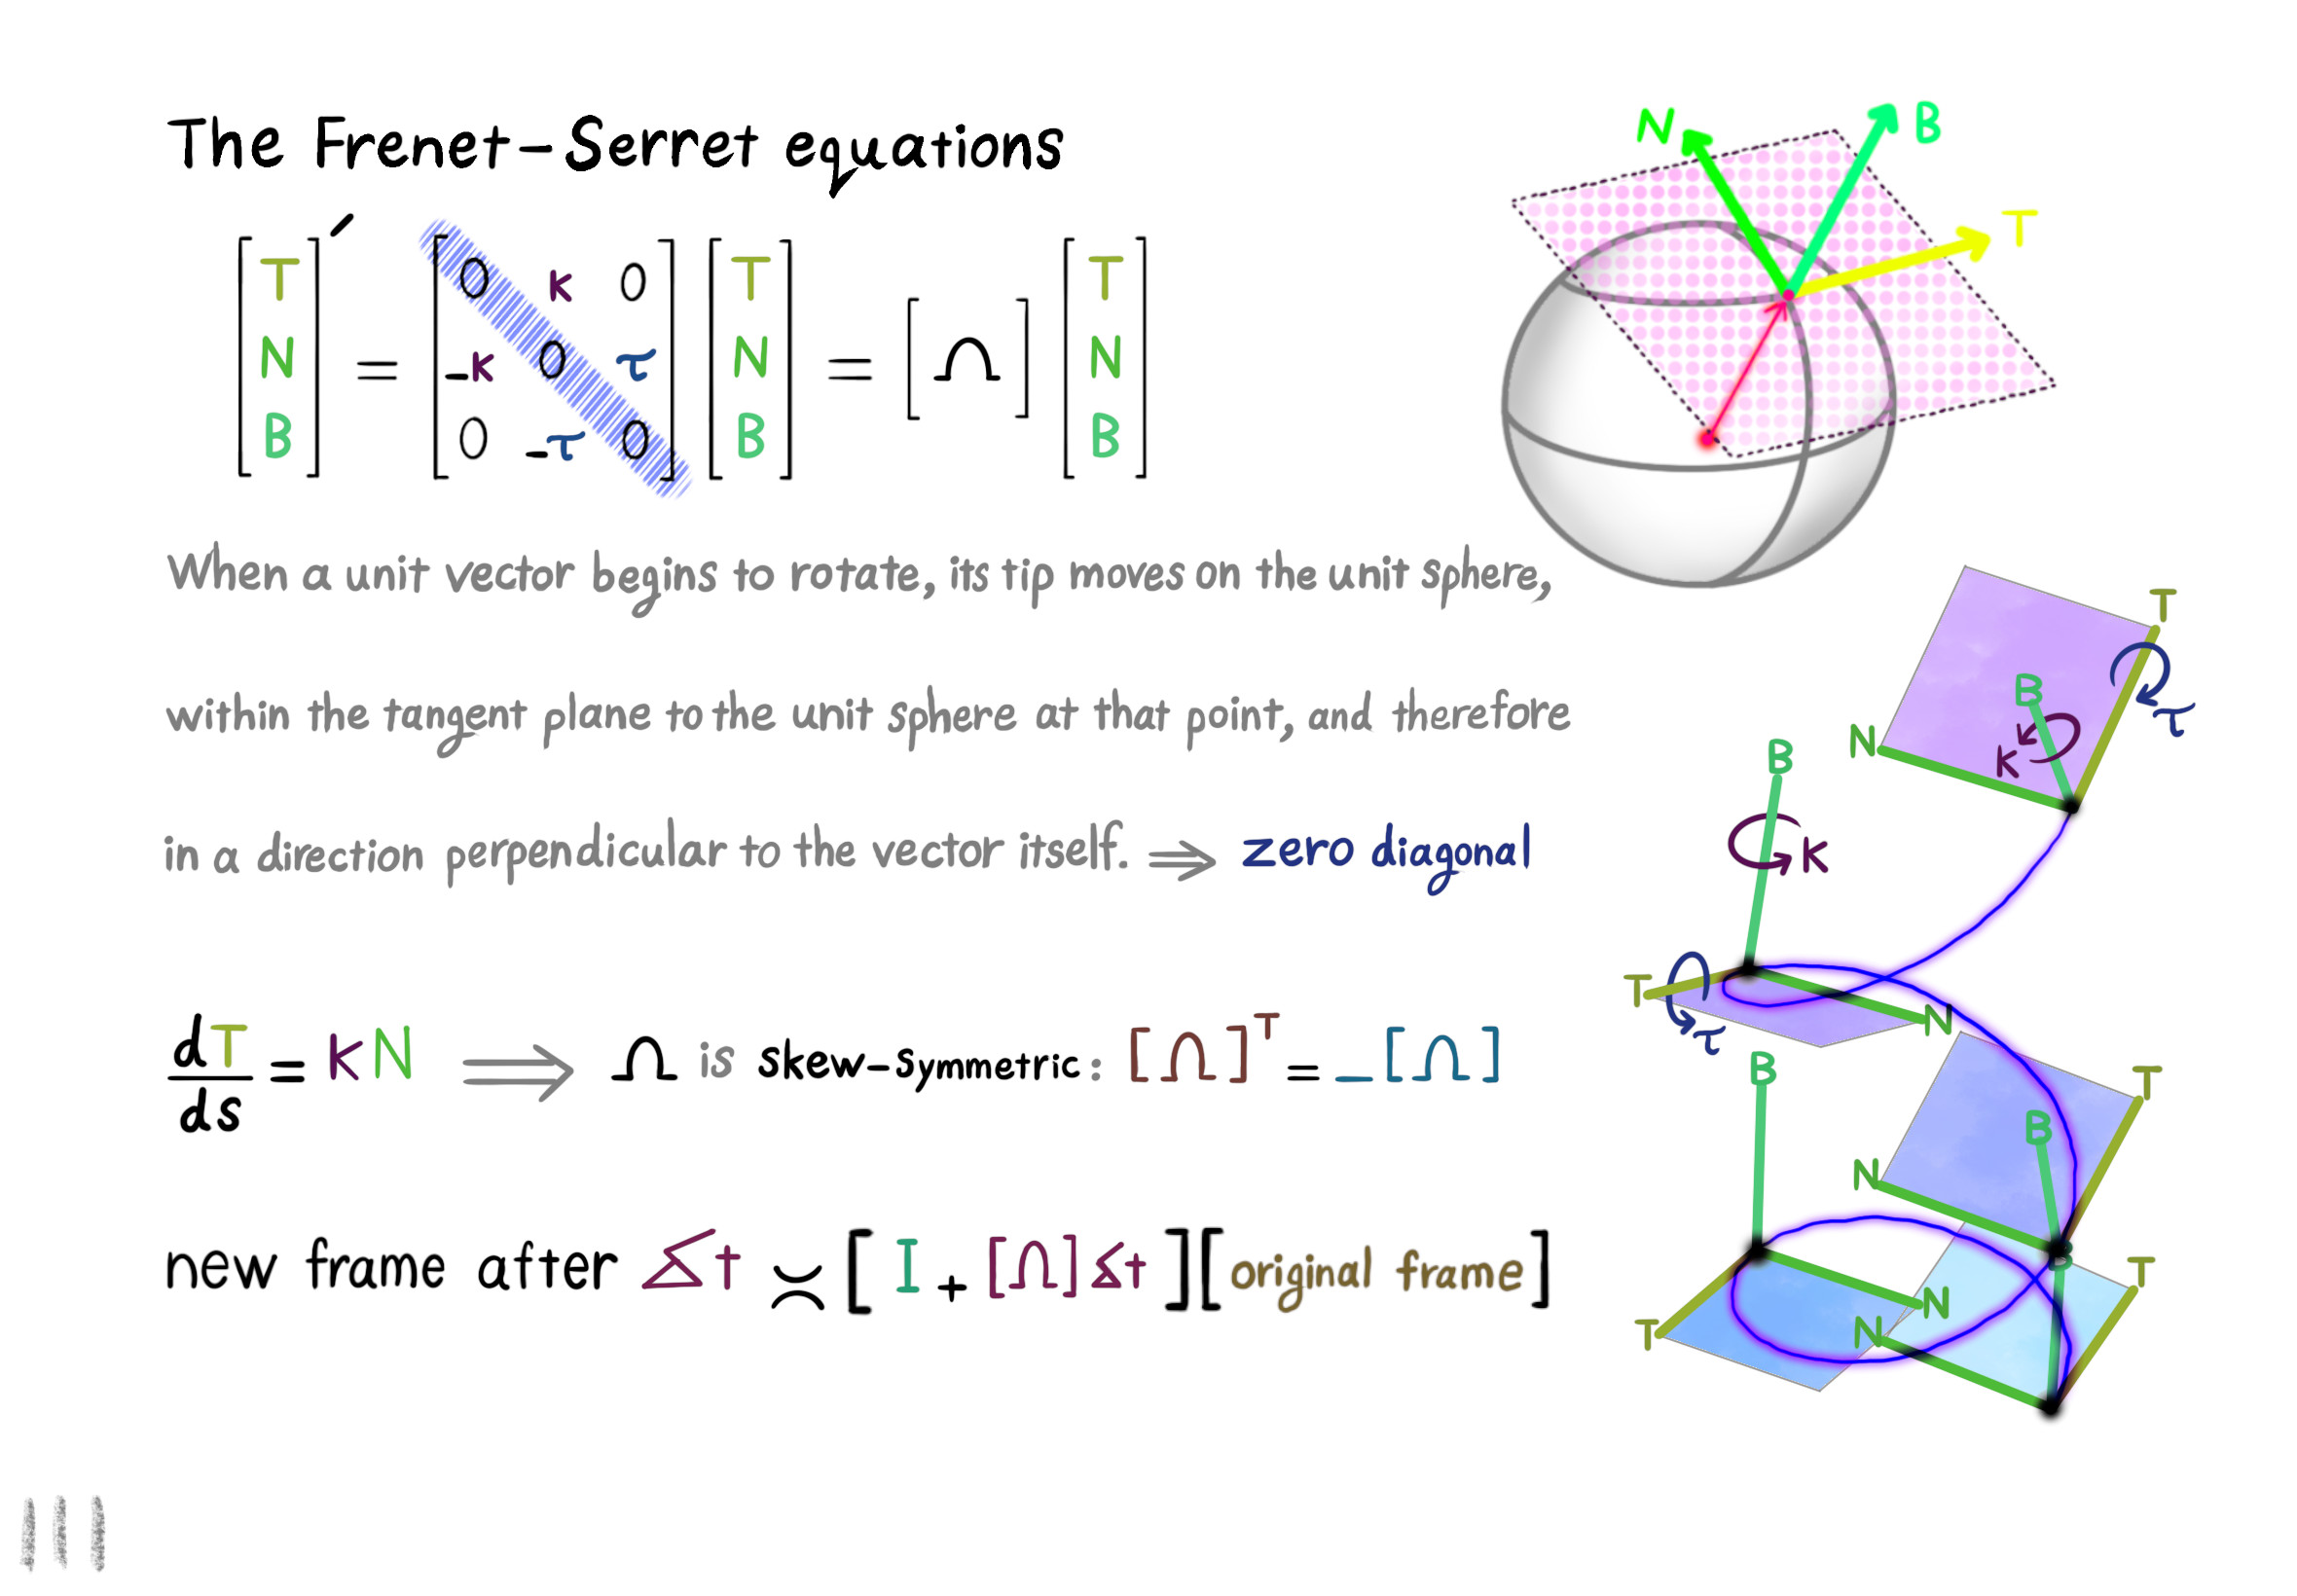 The Frenet-Serret equations
[T N B]′ = [0 κ 0; -κ 0 τ; 0 -τ 0] [T N B] = [Ω] [T N B]
When a unit vector begins to rotate, its tip moves on the unit sphere,
within the tangent plane to the unit sphere at that point, and therefore
in a direction perpendicular to the vector itself. ⟹ zero diagonal
dT/ds = κN ⟹ Ω is skew-symmetric: [Ω]ᵀ = -[Ω]
new frame after ⦛t ≍ [I + [Ω]⦛t][original frame]
N
B
T
T
B
N
κ
τ
B
κ
T
τ
N
B
T
B
N
B
T
N
T
N
III